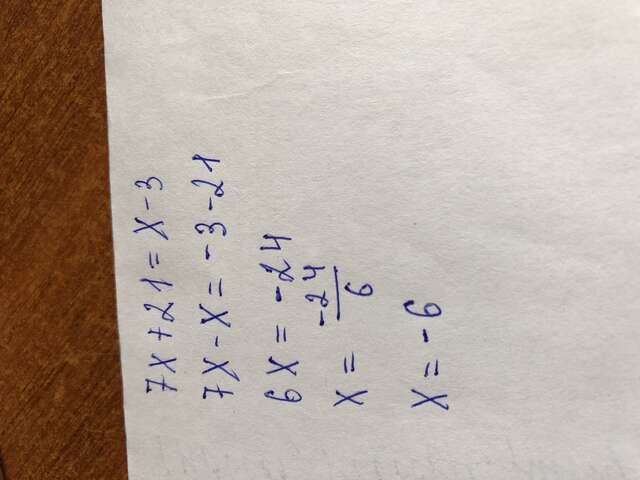 7x+21=x-3
7x-x=-3-21
6x=-24
x=-24/6
x=-6